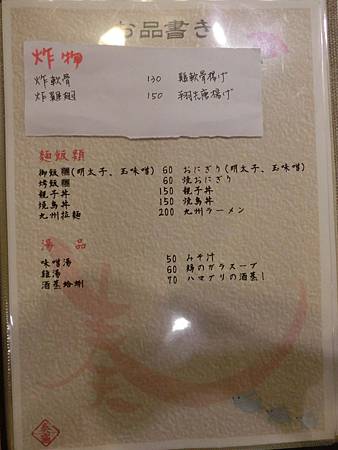 お品書き
炸物
炸軟骨 130 鶏軟骨揚げ
炸雞翅 150 羽先唐揚げ
麵飯類
御飯糰(明太子、玉味噌) 60 おにぎり(明太子、玉味噌)
烤飯糰 60 焼おにぎり
親子丼 150 親子丼
燒鳥丼 150 焼鳥丼
九州拉麵 200 九州ラーメン
湯品
味噌湯 50 みそ汁
雞湯 60 鶏のガラスープ
酒蒸蛤蜊 70 ハマグリの酒蒸し